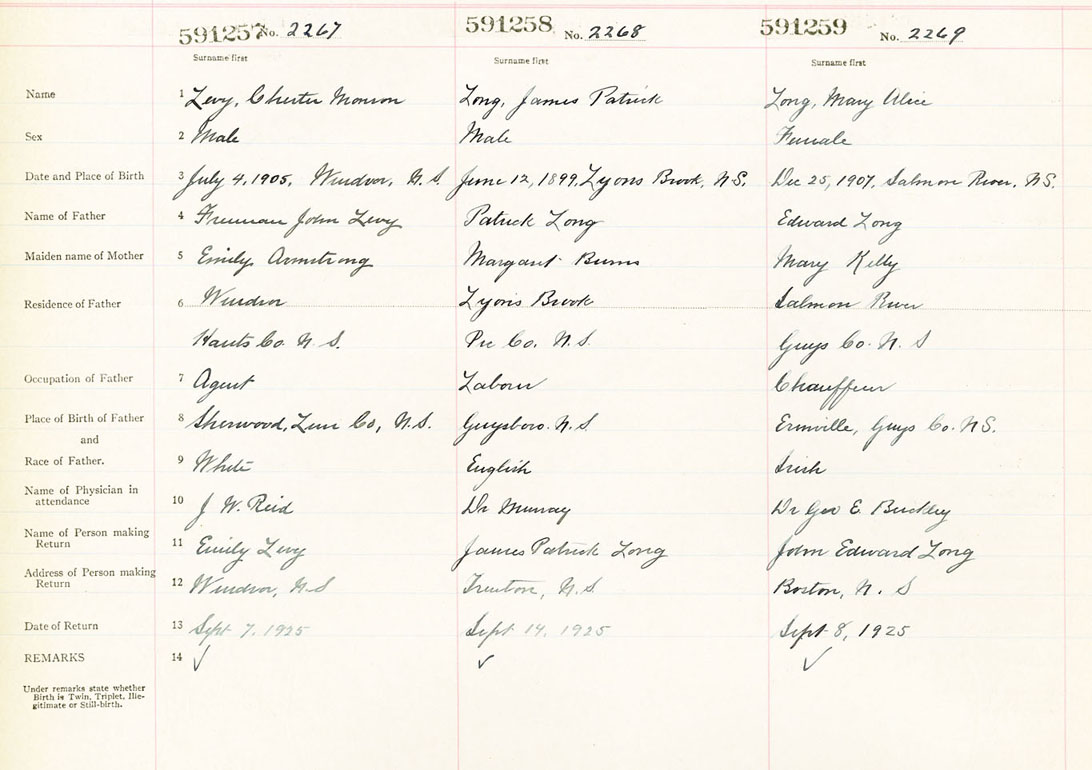 591257 No. 2267 591258 No. 2268 591259 No. 2269
Surname first Surname first Surname first
Name 1 Levy, Chester Monson Long, James Patrick Long, Mary Alice
Sex 2 Male Male Female
Date and Place of Birth 3 July 4, 1905, Windsor, N.S. June 12, 1899, Lyons Brook, N.S. Dec 25, 1907, Salmon River, N.S.
Name of Father 4 Freeman John Levy Patrick Long Edward Long
Maiden name of Mother 5 Emily Armstrong Margaret Burns Mary Kelly
Residence of Father 6 Windsor Lyons Brook Salmon River
Hants Co. N.S. Pic Co. N.S. Guys Co. N.S
Occupation of Father 7 Agent Labour Chauffeur
Place of Birth of Father 8 Sherwood, Lun Co, N.S. Guysboro. N.S. Erinville, Guys Co. N.S.
and
Race of Father. 9 White English Irish
Name of Physician in
attendance 10 J. W. Reid Dr Murray Dr Geo E. Buckley
Name of Person making
Return 11 Emily Levy James Patrick Long John Edward Long
Address of Person making
Return 12 Windsor, N.S Trenton, N.S. Boston, N. S
Date of Return 13 Sept 7, 1925 Sept 14, 1925 Sept 8, 1925
REMARKS 14 ✓ ✓ ✓
Under remarks state whether
Birth is Twin, Triplet, Ille-
gitimate or Still-birth.